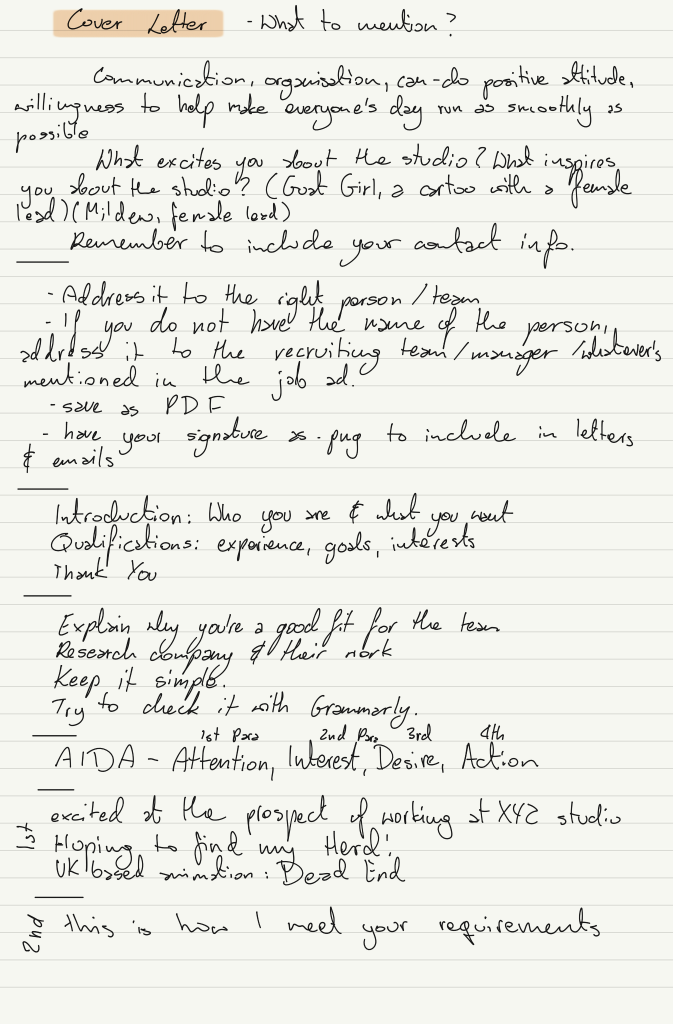 Cover Letter - What to mention?
Communication, organisation, can-do positive attitude,
willingness to help make everyone's day run as smoothly as
possible
What excites you about the studio? What inspires
you about the studio? (Goat Girl, a cartoo with a female
lead)(Mildew, female lead)
Remember to include your contact info.
- Address it to the right person / team
- If you do not have the name of the person,
address it to the recruiting team/manager /whatever's
mentioned in the job ad.
- save as PDF
- have your signature as .png to include in letters
& emails
Introduction: Who you are & what you want
Qualifications: experience, goals, interests
Thank You
Explain why you're a good fit for the team
Research company & their work
Keep it simple.
Try to check it with Grammarly.
1st Para 2nd Para 3rd 4th
AIDA - Attention, Interest, Desire, Action
1st excited at the prospect of working at XYZ studio
Hoping to find my Herd!
UK based animation: Dead End
2nd this is how I meet your requirements